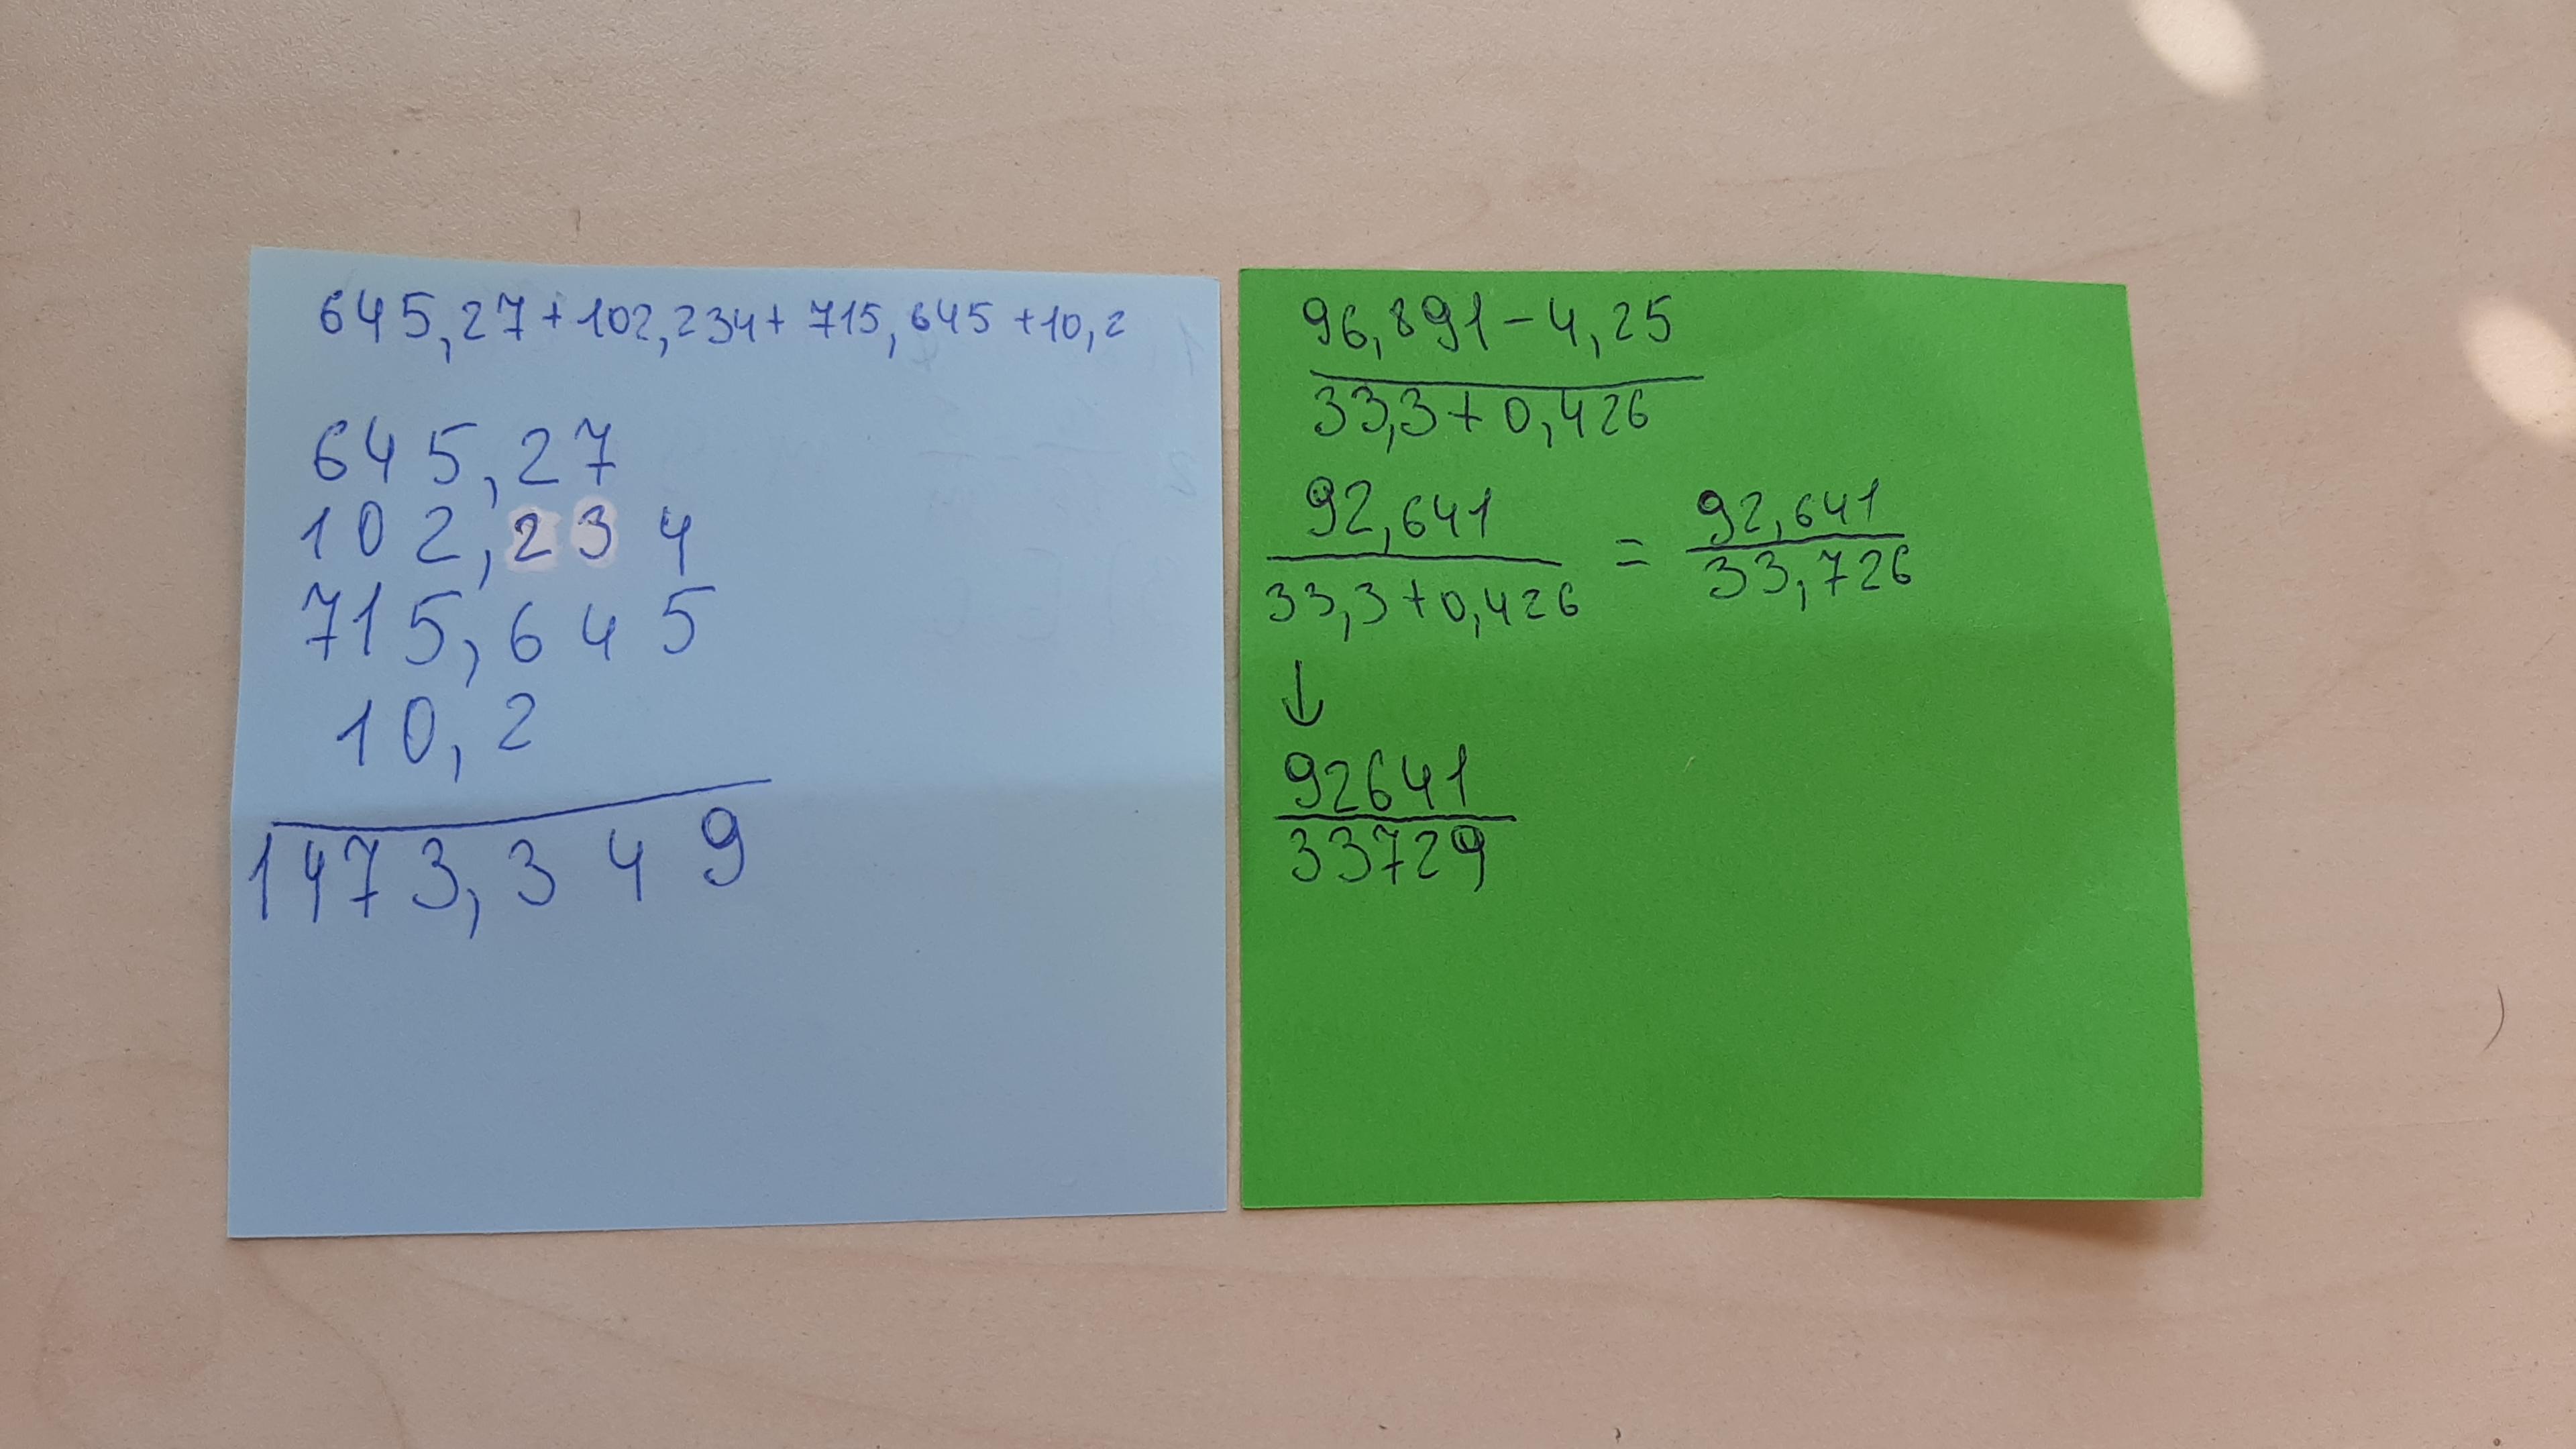 645,27+102,234+715,645+10,2
645,27
102,234
715,645
10,2
1473,349
96,891-4,25
33,3+0,426
92,641 = 92,641
33,3+0,426 33,726
↓
92641
33729